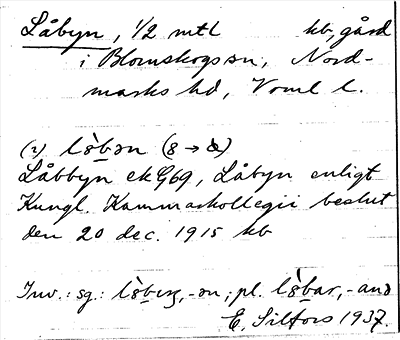 Låbyn, 1/2 mtl kb, gård
i Blomskogs sn, Nord-
marks hd, Verml l.
(2) lò̀bən (8 → a)
Låbbyn ek G69, Låbyn enligt
Kungl. Kammarkollegii beslut
den 20 dec. 1915 kb
Inv.: sg.: -ən; pl. -ană
E. Silfors 1937.